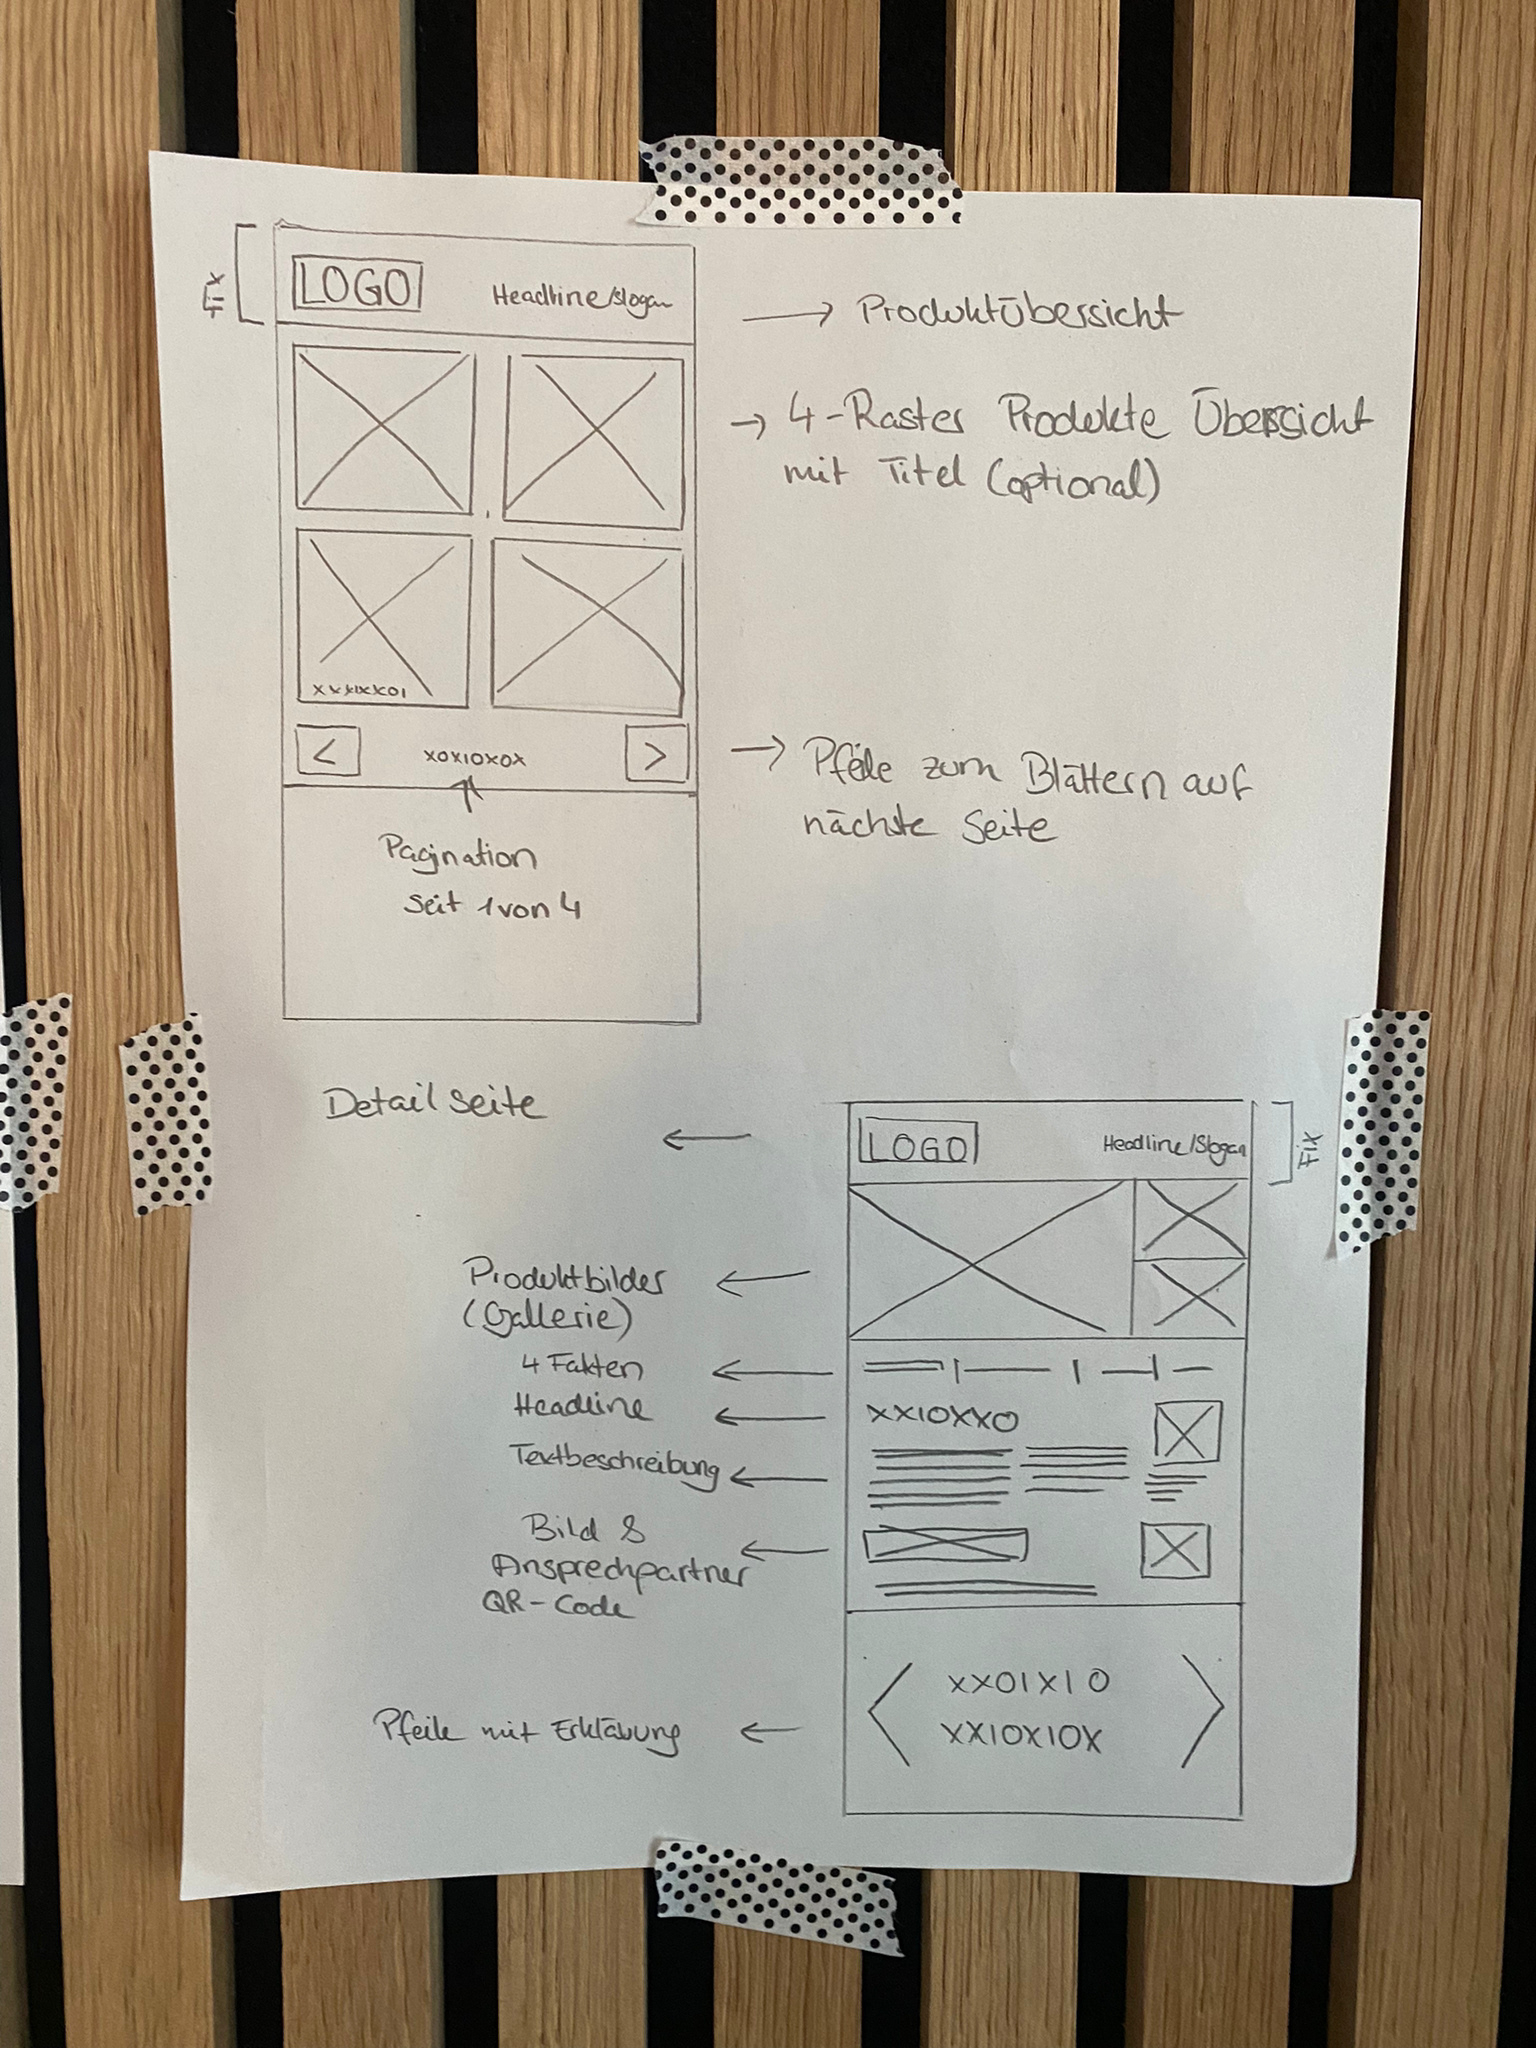 Fix
LOGO
Headline/Slogan
→ Produktübersicht
→ 4-Raster Produkte Übersicht
mit Titel (optional)
XXXIXXOI
<
XOXIOXOX
>
→ Pfeile zum Blättern auf
nächste Seite
Pagination
Seit 1 von 4
Detailseite
LOGO
Headline/Slogan
Fix
Produktbilder
(Gallerie)
4 Fakten
Headline
XXIOXXO
Textbeschreibung
Bild &
Ansprechpartner
QR-Code
Pfeile mit Erklärung
<
XXOIXIO
XXIOXIOX
>